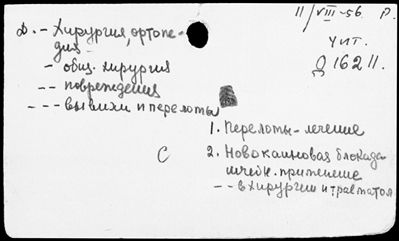 11/VIII-56. Р.
Д. - Хирургия, ортопе-
дия -
чит.
- общ. хирургия
Д 16211.
-- повреждения
--- вывихи и переломы
1. Переломы - лечение
С
2. Новокаиновая блокада
- - в хирургии и травматол